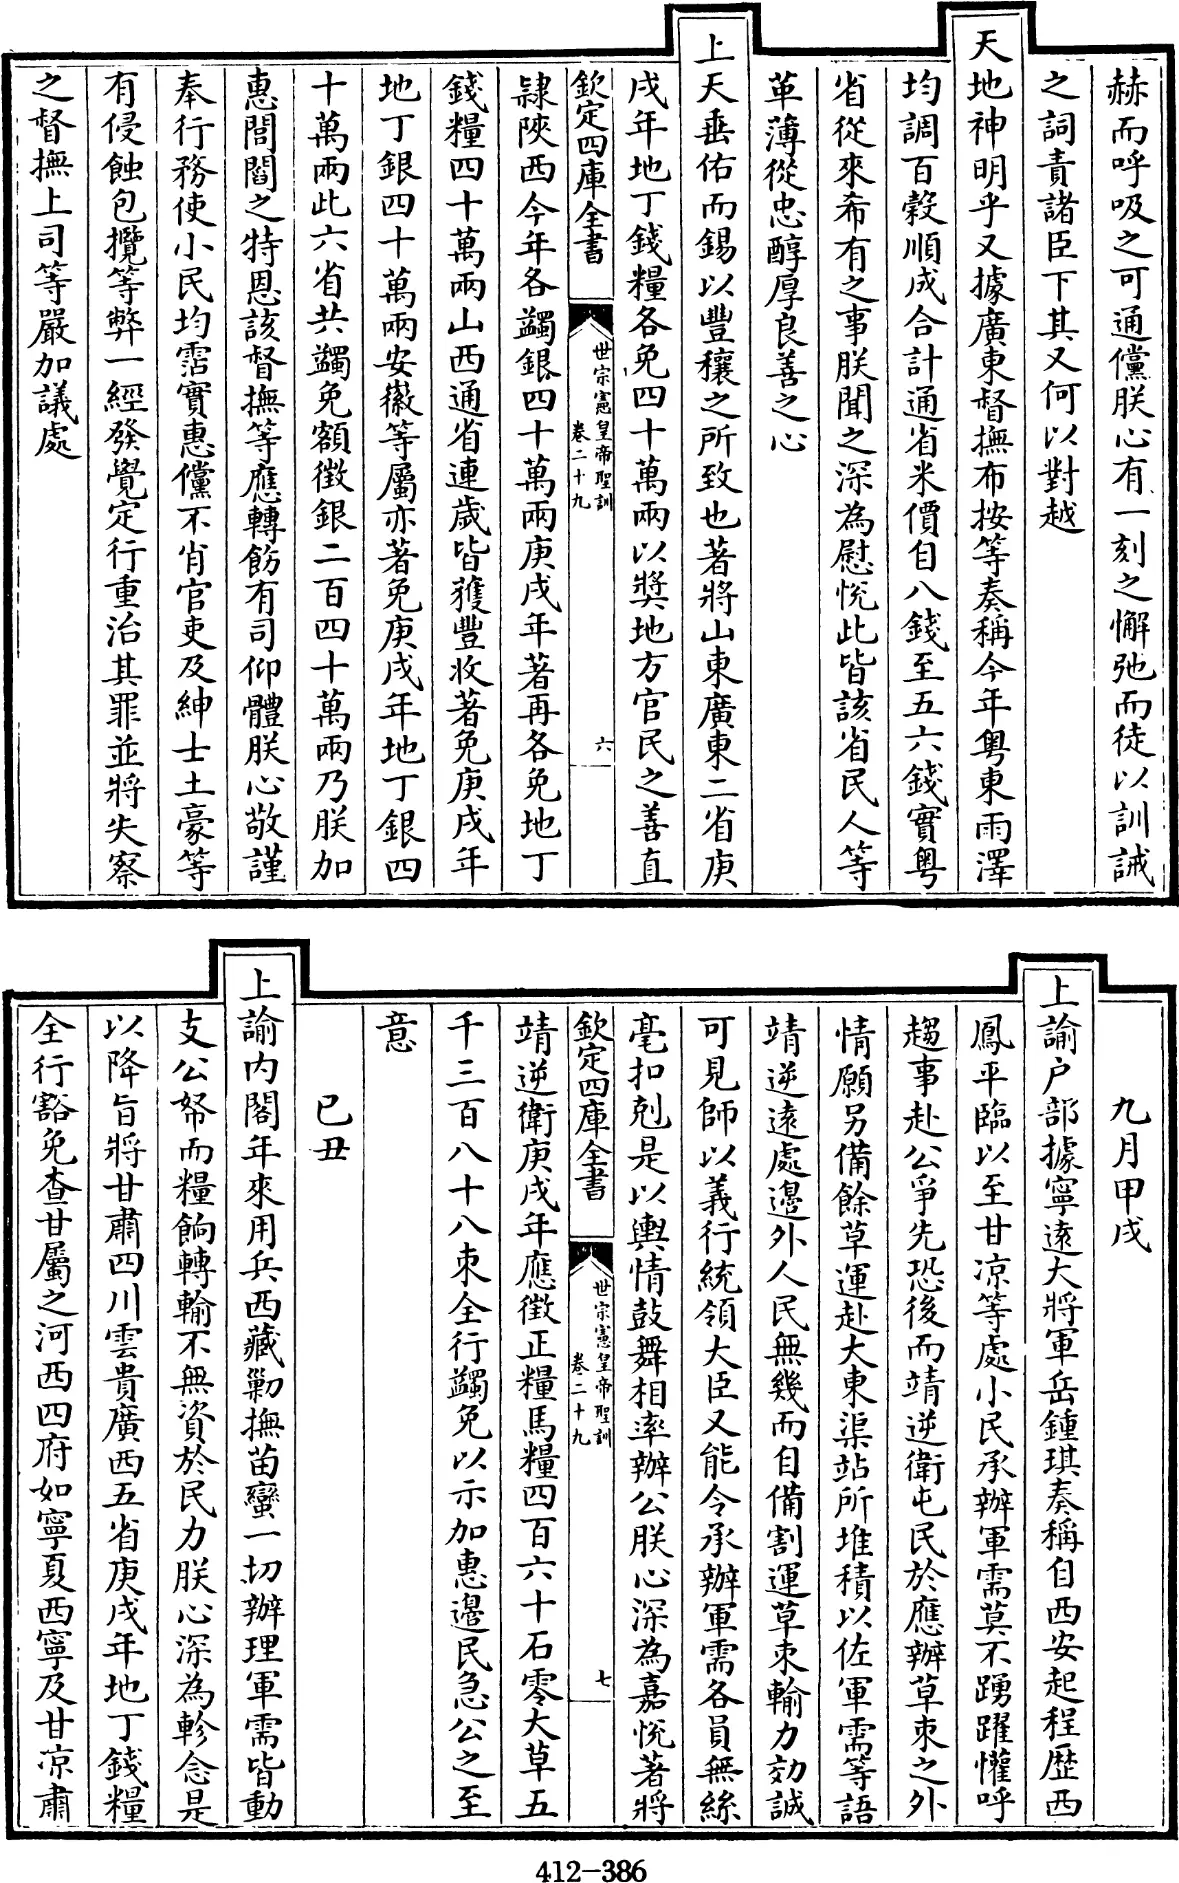 赫而呼吸之可通儻朕心有一刻之懈弛而徒以訓誡
之詞責諸臣下其又何以對越
天地神明乎又據廣東督撫布按等奏稱今年粤東雨澤
均調百穀順成合計通省米價自八錢至五六錢實粤
省從來希有之事朕聞之深為慰悅此皆該省民人等
革薄從忠醇厚良善之心
上天垂佑而錫以豐穰之所致也著將山東廣東二省庚
戌年地丁錢糧各免四十萬兩以奬地方官民之善直
欽定四庫全書
世宗憲皇帝聖訓
卷二十九
六
隸陝西今年各蠲銀四十萬兩庚戌年著再各免地丁
錢糧四十萬兩山西通省連歲皆獲豐收著免庚戌年
地丁銀四十萬兩安徽等屬亦著免庚戌年地丁銀四
十萬兩此六省共蠲免額徵銀二百四十萬兩乃朕加
惠閭閻之特恩該督撫等應轉飭有司仰體朕心敬謹
奉行務使小民均霑實惠儻不肖官吏及紳士土豪等
有侵蝕包攬等弊一經發覺定行重治其罪並將失察
之督撫上司等嚴加議處
九月甲戌
上諭户部據寧遠大將軍岳鍾琪奏稱自西安起程歷西
鳳平臨以至甘凉等處小民承辦軍需莫不踴躍懽呼
趨事赴公爭先恐後而靖逆衛屯民於應辦草束之外
情願另備餘草運赴大東渠站所堆積以佐軍需等語
靖逆遠處邊外人民無幾而自備割運草束輸力効誠
可見師以義行統領大臣又能令承辦軍需各員無絲
毫扣剋是以輿情鼓舞相率辦公朕心深為嘉悅著將
欽定四庫全書
世宗憲皇帝聖訓
卷二十九
七
靖逆衛庚戌年應徵正糧馬糧四百六十石零大草五
千三百八十八束全行蠲免以示加惠邊民急公之至
意
已丑
上諭内閣年來用兵西藏勦撫苗蠻一切辦理軍需皆動
支公帑而糧餉轉輸不無資於民力朕心深為軫念是
以降旨將甘肅四川雲貴廣西五省庚戌年地丁錢糧
全行豁免查甘屬之河西四府如寧夏西寧及甘凉肅
412-386